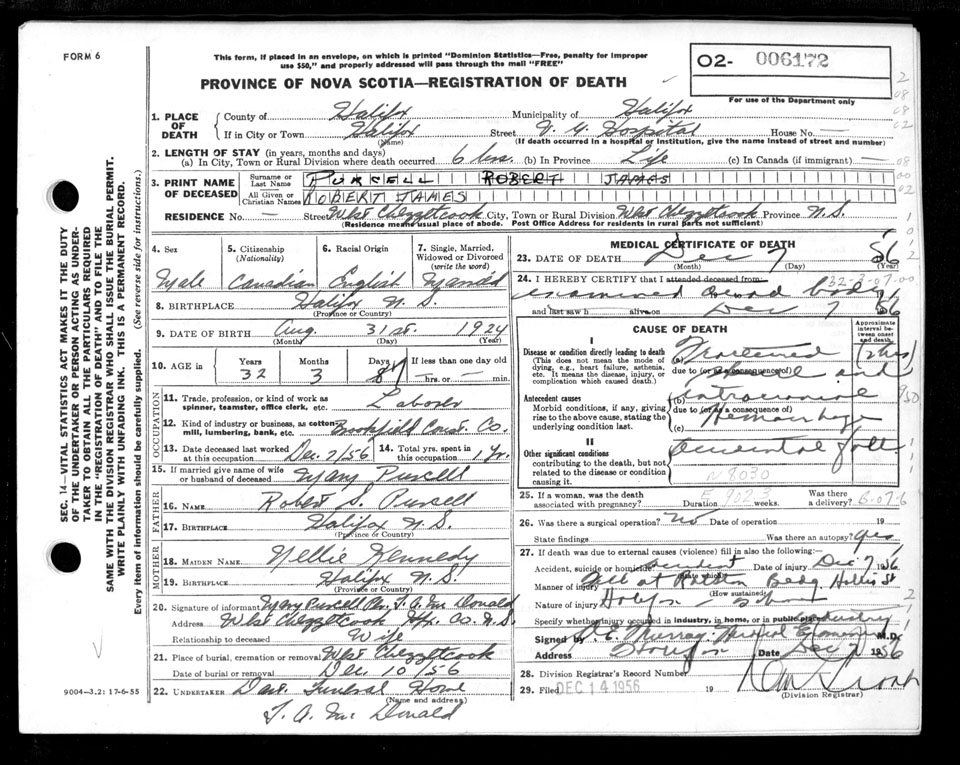 FORM 6
This form, if placed in an envelope, on which is printed "Dominion Statistics—Free, penalty for improper
use $50," and properly addressed will pass through the mail "FREE"
PROVINCE OF NOVA SCOTIA—REGISTRATION OF DEATH
O2- 006172
For use of the Department only
SEC. 14—VITAL STATISTICS ACT MAKES IT THE DUTY
OF THE UNDERTAKER OR PERSON ACTING AS UNDER-
TAKER TO OBTAIN ALL THE PARTICULARS REQUIRED
IN THE "REGISTRATION OF DEATH" AND TO FILE THE
SAME WITH THE DIVISION REGISTRAR WHO SHALL ISSUE THE BURIAL PERMIT.
WRITE PLAINLY WITH UNFADING INK. THIS IS A PERMANENT RECORD.
Every item of information should be carefully supplied. (See reverse side for instructions.)
1. PLACE OF DEATH
County of Halifax Municipality of Halifax
If in City or Town Halifax Street V. G. Hospital House No. —
(Name) (If death occurred in a hospital or institution, give the name instead of street and number)
2. LENGTH OF STAY (in years, months and days)
(a) In City, Town or Rural Division where death occurred 6 hrs. (b) In Province Life (c) In Canada (if immigrant) —
3. PRINT NAME OF DECEASED
Surname or Last Name PURCELL ROBERT JAMES
All Given or Christian Names ROBERT JAMES
RESIDENCE No. — Street West Chezzetcook City, Town or Rural Division West Chezzetcook Province N.S.
(Residence means usual place of abode. Post Office Address for residents in rural parts not sufficient)
4. Sex Male
5. Citizenship (Nationality) Canadian
6. Racial Origin English
7. Single, Married, Widowed or Divorced (write the word) Married
8. BIRTHPLACE Halifax N.S.
(Province or Country)
9. DATE OF BIRTH Aug. 31st. 1924
(Month) (Year)
10. AGE in Years 32 Months 3 Days If less than one day old — hrs. or — min.
OCCUPATION
11. Trade, profession, or kind of work as spinner, teamster, office clerk, etc. Laborer
12. Kind of industry or business, as cotton mill, lumbering, bank, etc. Brookfield Const. Co.
13. Date deceased last worked at this occupation Dec. 7/56 14. Total yrs. spent in this occupation 1 yr.
15. If married give name of wife or husband of deceased Mary Purcell
FATHER
16. NAME Robert S. Purcell
17. BIRTHPLACE Halifax N.S.
(Province or Country)
MOTHER
18. MAIDEN NAME Nellie Kennedy
19. BIRTHPLACE Halifax N.S.
(Province or Country)
20. Signature of informant Mary Purcell Per. T. A. Mc Donald
Address West Chezzetcook Hfx. Co. N.S.
Relationship to deceased Wife
21. Place of burial, cremation or removal West Chezzetcook
Date of burial or removal Dec. 10/56
22. UNDERTAKER Dart. Funeral Home
(Name and address)
T. A. Mc Donald
9004—3,2: 17-6-55
MEDICAL CERTIFICATE OF DEATH
23. DATE OF DEATH Dec 7 56
(Month) (Day) (Year)
24. I HEREBY CERTIFY that I attended deceased from
examined dead body 32-3-07.00
and last saw h alive on Dec 7 56
CAUSE OF DEATH
Approximate interval between onset and death
I
Disease or condition directly leading to death
(This does not mean the mode of dying, e.g., heart failure, asthenia, etc. It means the disease, injury, or complication which caused death.)
(a) Fractured
due to (or as a consequence of) Skull and
Antecedent causes
Morbid conditions, if any, giving rise to the above cause, stating the underlying condition last.
(b) intracranial
due to (or as a consequence of)
(c) Hemorrhage
II
Other significant conditions
contributing to the death, but not related to the disease or condition causing it.
accidental fall
N 8030
E 902
25. If a woman, was the death associated with pregnancy? Duration weeks. Was there a delivery?
26. Was there a surgical operation? No Date of operation 19
State findings Was there an autopsy? yes
27. If death was due to external causes (violence) fill in also the following:
Accident, suicide or homicide? accident Date of injury Dec 7 1956
(State which)
Manner of injury Fell at Bldg Hollis St
(How sustained)
Nature of injury
Specify whether injury occurred in industry, in home, or in public place industry
Signed by Murray Medical Examiner M.D.
Address Halifax Date Dec 7 1956
28. Division Registrar's Record Number
29. Filed DEC 14 1956 19
(Division Registrar)